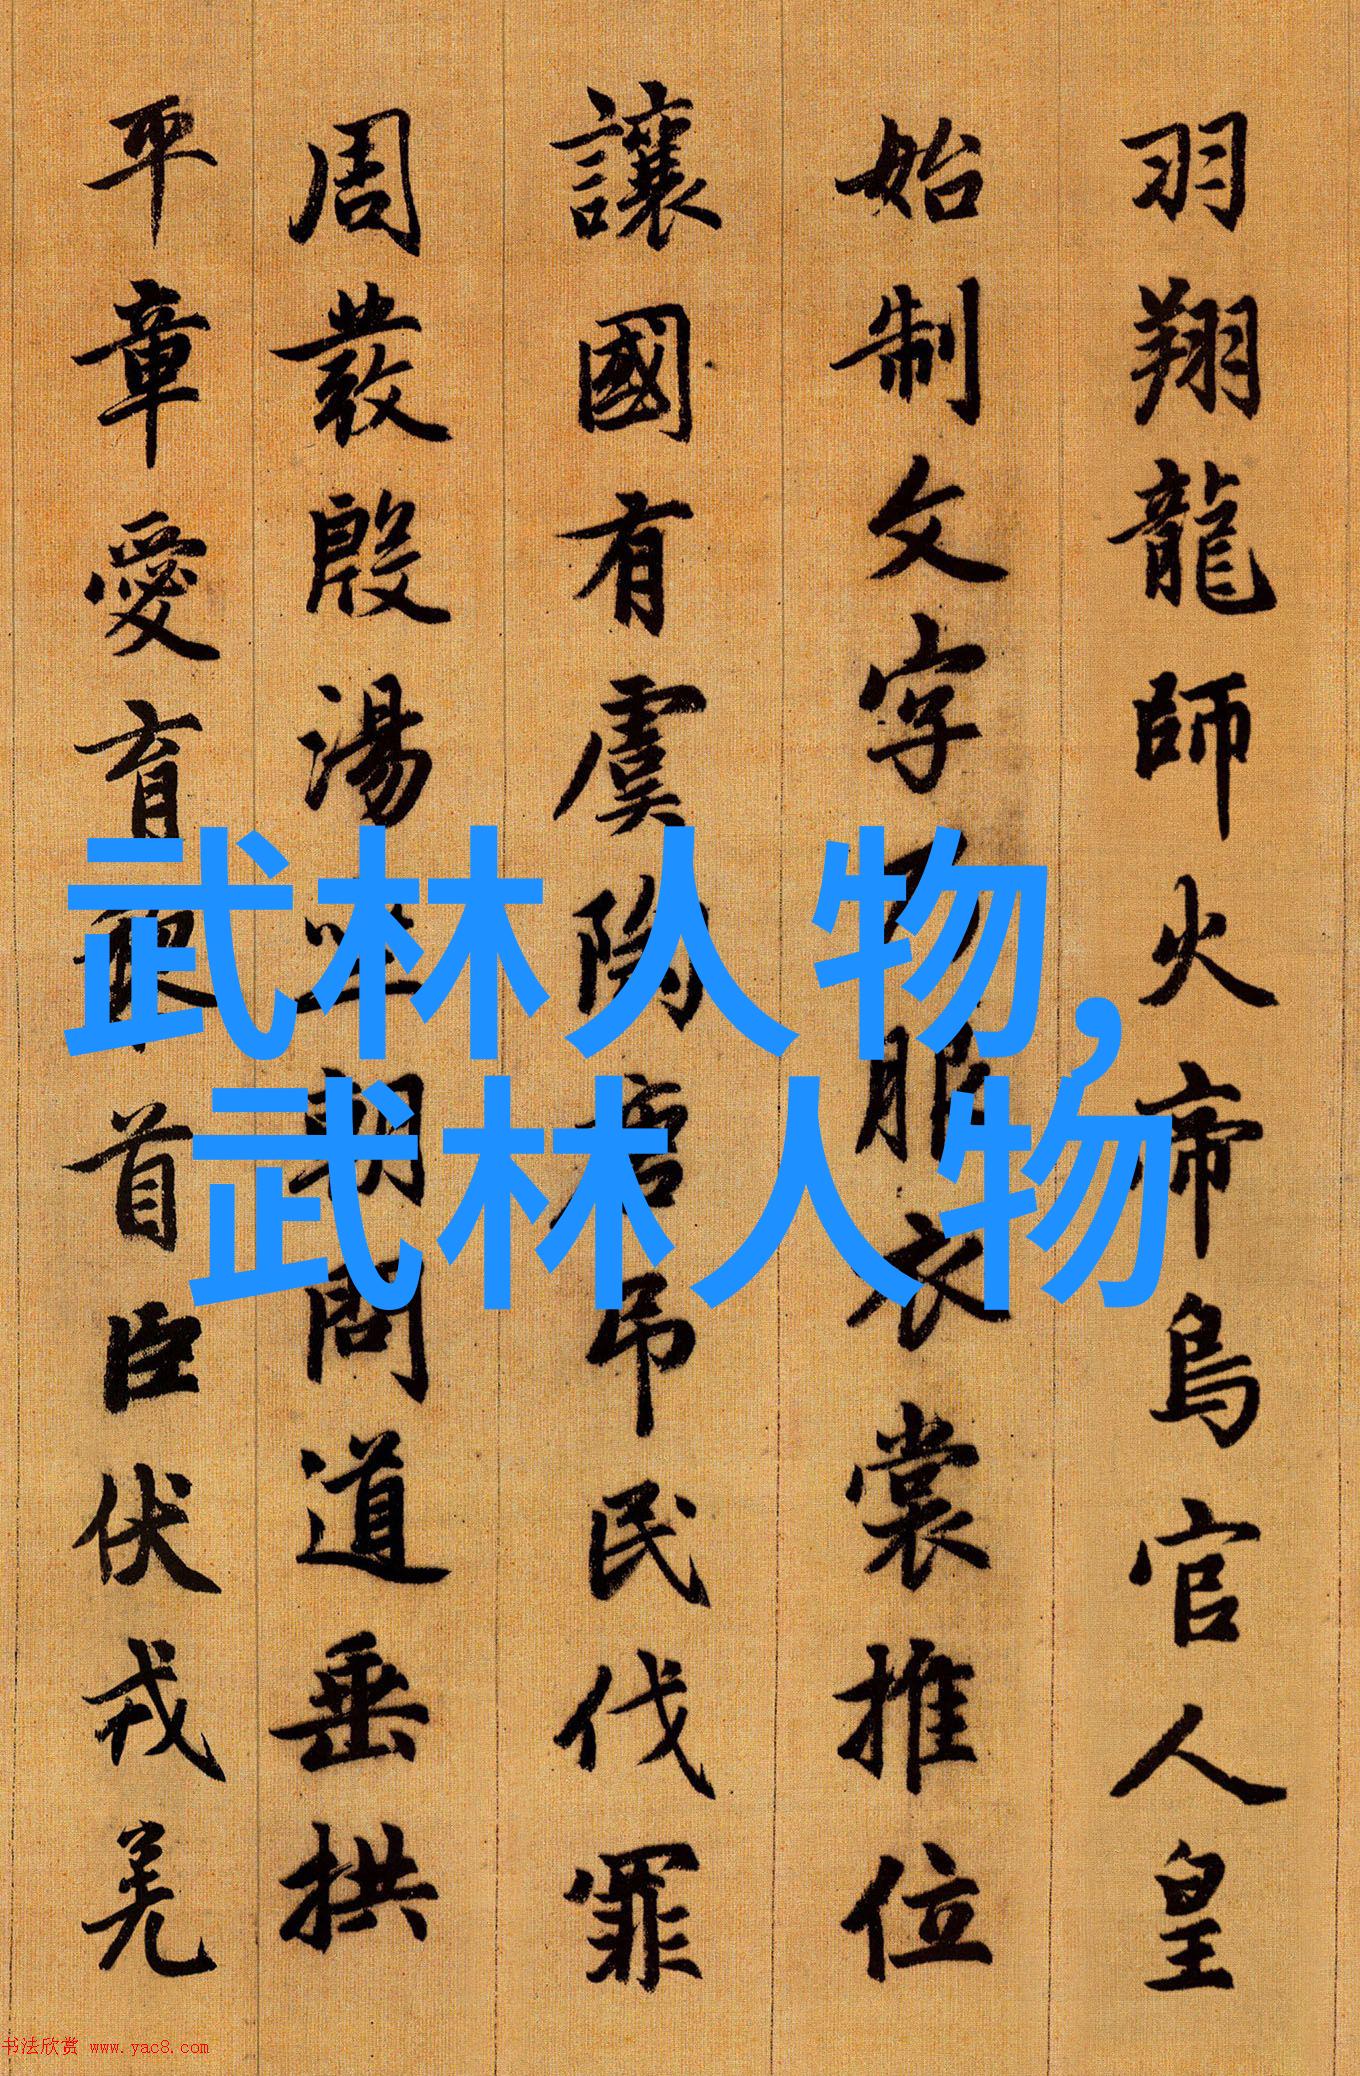 羽翔龍師火帝鳥官人皇
始制文字服衣裳推位
讓國有虞陶唐吊民伐罪
周發殷湯朝問道垂拱
平章愛育首臣伏戎羌
武林人物,
武林人物
书法欣赏 www.yac8.com